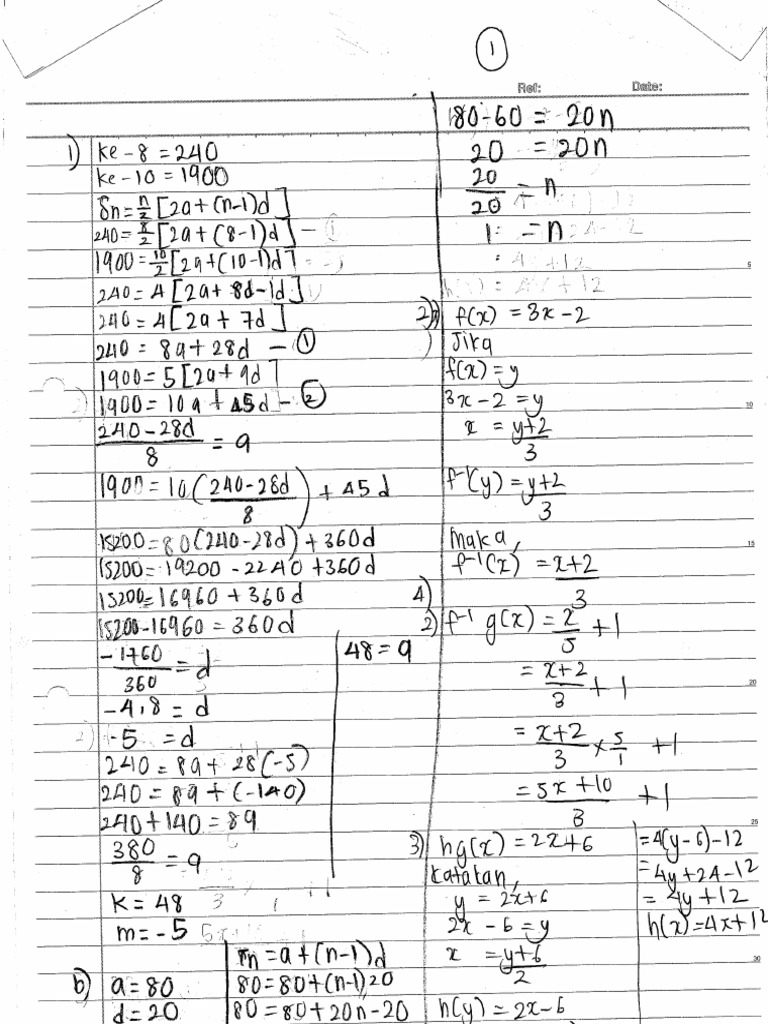 1
Ref: Date:
1) ke - 8 = 240
ke - 10 = 1900
Sn = n/2 [2a + (n-1)d]
240 = 8/2 [2a + (8-1)d] - 1
1900 = 10/2 [2a + (10-1)d]
240 = 4 [2a + 8d - 1d]
240 = 4 [2a + 7d]
240 = 8a + 28d - 1
1900 = 5 [2a + 9d]
1900 = 10a + 45d - 2
240 - 28d / 8 = a
1900 = 10 (240 - 28d / 8) + 45d
15200 = 80 (240 - 28d) + 360d
15200 = 19200 - 2240 + 360d
15200 = 16960 + 360d
15200 - 16960 = 360d
-1760 / 360 = d
-4.8 = d
-5 = d
240 = 8a + 28(-5)
240 = 8a + (-140)
240 + 140 = 89
380 / 8 = 9
k = 48
m = -5
48 = 9
b) a = 80
d = 20
Tn = a + (n-1)d
80 = 80 + (n-1)20
80 = 80 + 20n - 20
180 - 60 = 20n
20 = 20n
20/20 = n
1 = n
2) f(x) = 3x - 2
Jika
f(x) = y
3x - 2 = y
x = y+2 / 3
f⁻¹(y) = y+2 / 3
Maka,
f⁻¹(x) = x+2 / 3
4)
2) f⁻¹ g(x) = 2/5 + 1
= x+2 / 3 + 1
= x+2 / 3 × 5/1 + 1
= 5x + 10 / 3 + 1
3) hg(x) = 2x + 6
katakan,
y = 2x + 6
2x - 6 = y
x = y+6 / 2
h(y) = 2x - 6
= 4(y - 6) - 12
= 4y + 24 - 12
= 4y + 12
h(x) = 4x + 12